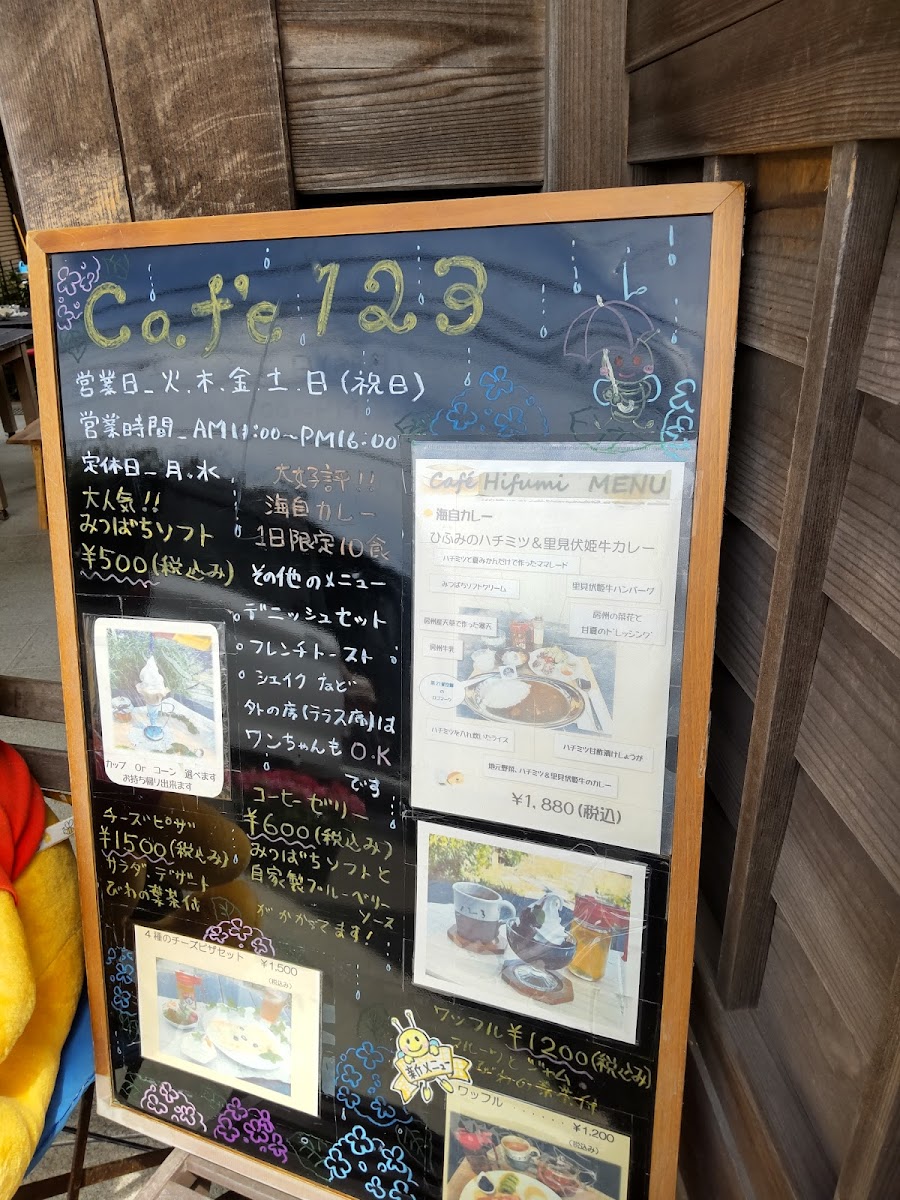 Cafe 123
営業日_火.木.金.土.日(祝日)
営業時間_AM11:00〜PM16:00
定休日_月.水
大人気!!
みつばちソフト
¥500(税込み)
カップ Or コーン 選べます
お持ち帰り出来ます
大好評!!
海自カレー
1日限定10食
その他のメニュー
デニッシュセット
フレンチトースト
シェイク など
外の席(テラス席)は
ワンちゃんもO.K
です
Café Hifumi MENU
海自カレー
ひふみのハチミツ&里見伏姫牛カレー
ハチミツと夏みかんだけで作ったママレード
みつばちソフトクリーム
里見伏姫牛ハンバーグ
房州産天草で作った寒天
房州の菜花と
甘夏のドレッシング
房州牛乳
ハチミツを入れ炊いたライス
ハチミツ甘酢漬けしょうが
地元野菜、ハチミツ&里見伏姫牛のカレー
¥1,880(税込)
チーズピザ
¥1500(税込み)
サラダ・デザート
びわの葉茶付
コーヒーゼリー
¥600(税込み)
みつばちソフトと
自家製ブルーベリー
ソース
がかかってます!
4種のチーズピザセット ¥1,500
(税込み)
ワッフル¥1200(税込み)
フルーツとジャム
びわの葉茶付
新メニュー
ワッフル ........ ¥1,200
(税込み)